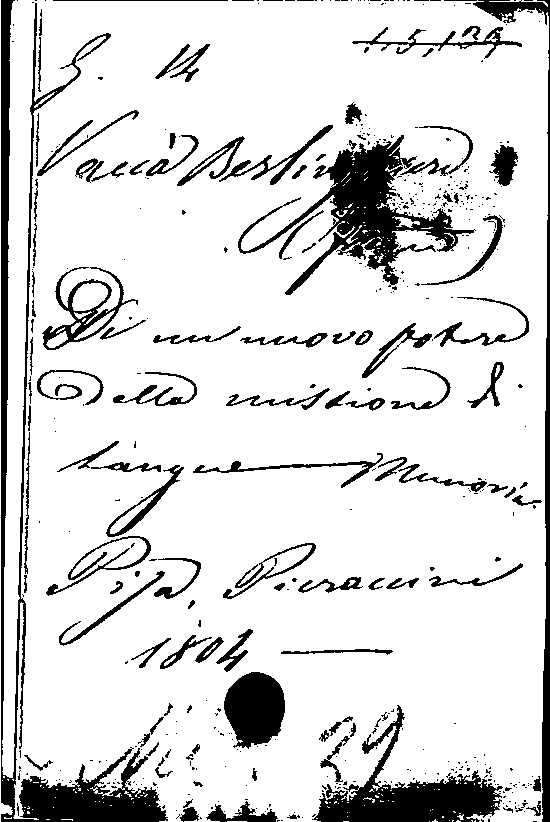 1.5,133
G. 14
Vaccà Berlinghieri
Di un nuovo potere
Della missione di
Sangue — Memoria.
Pisa, Pieraccini
1804 —
29